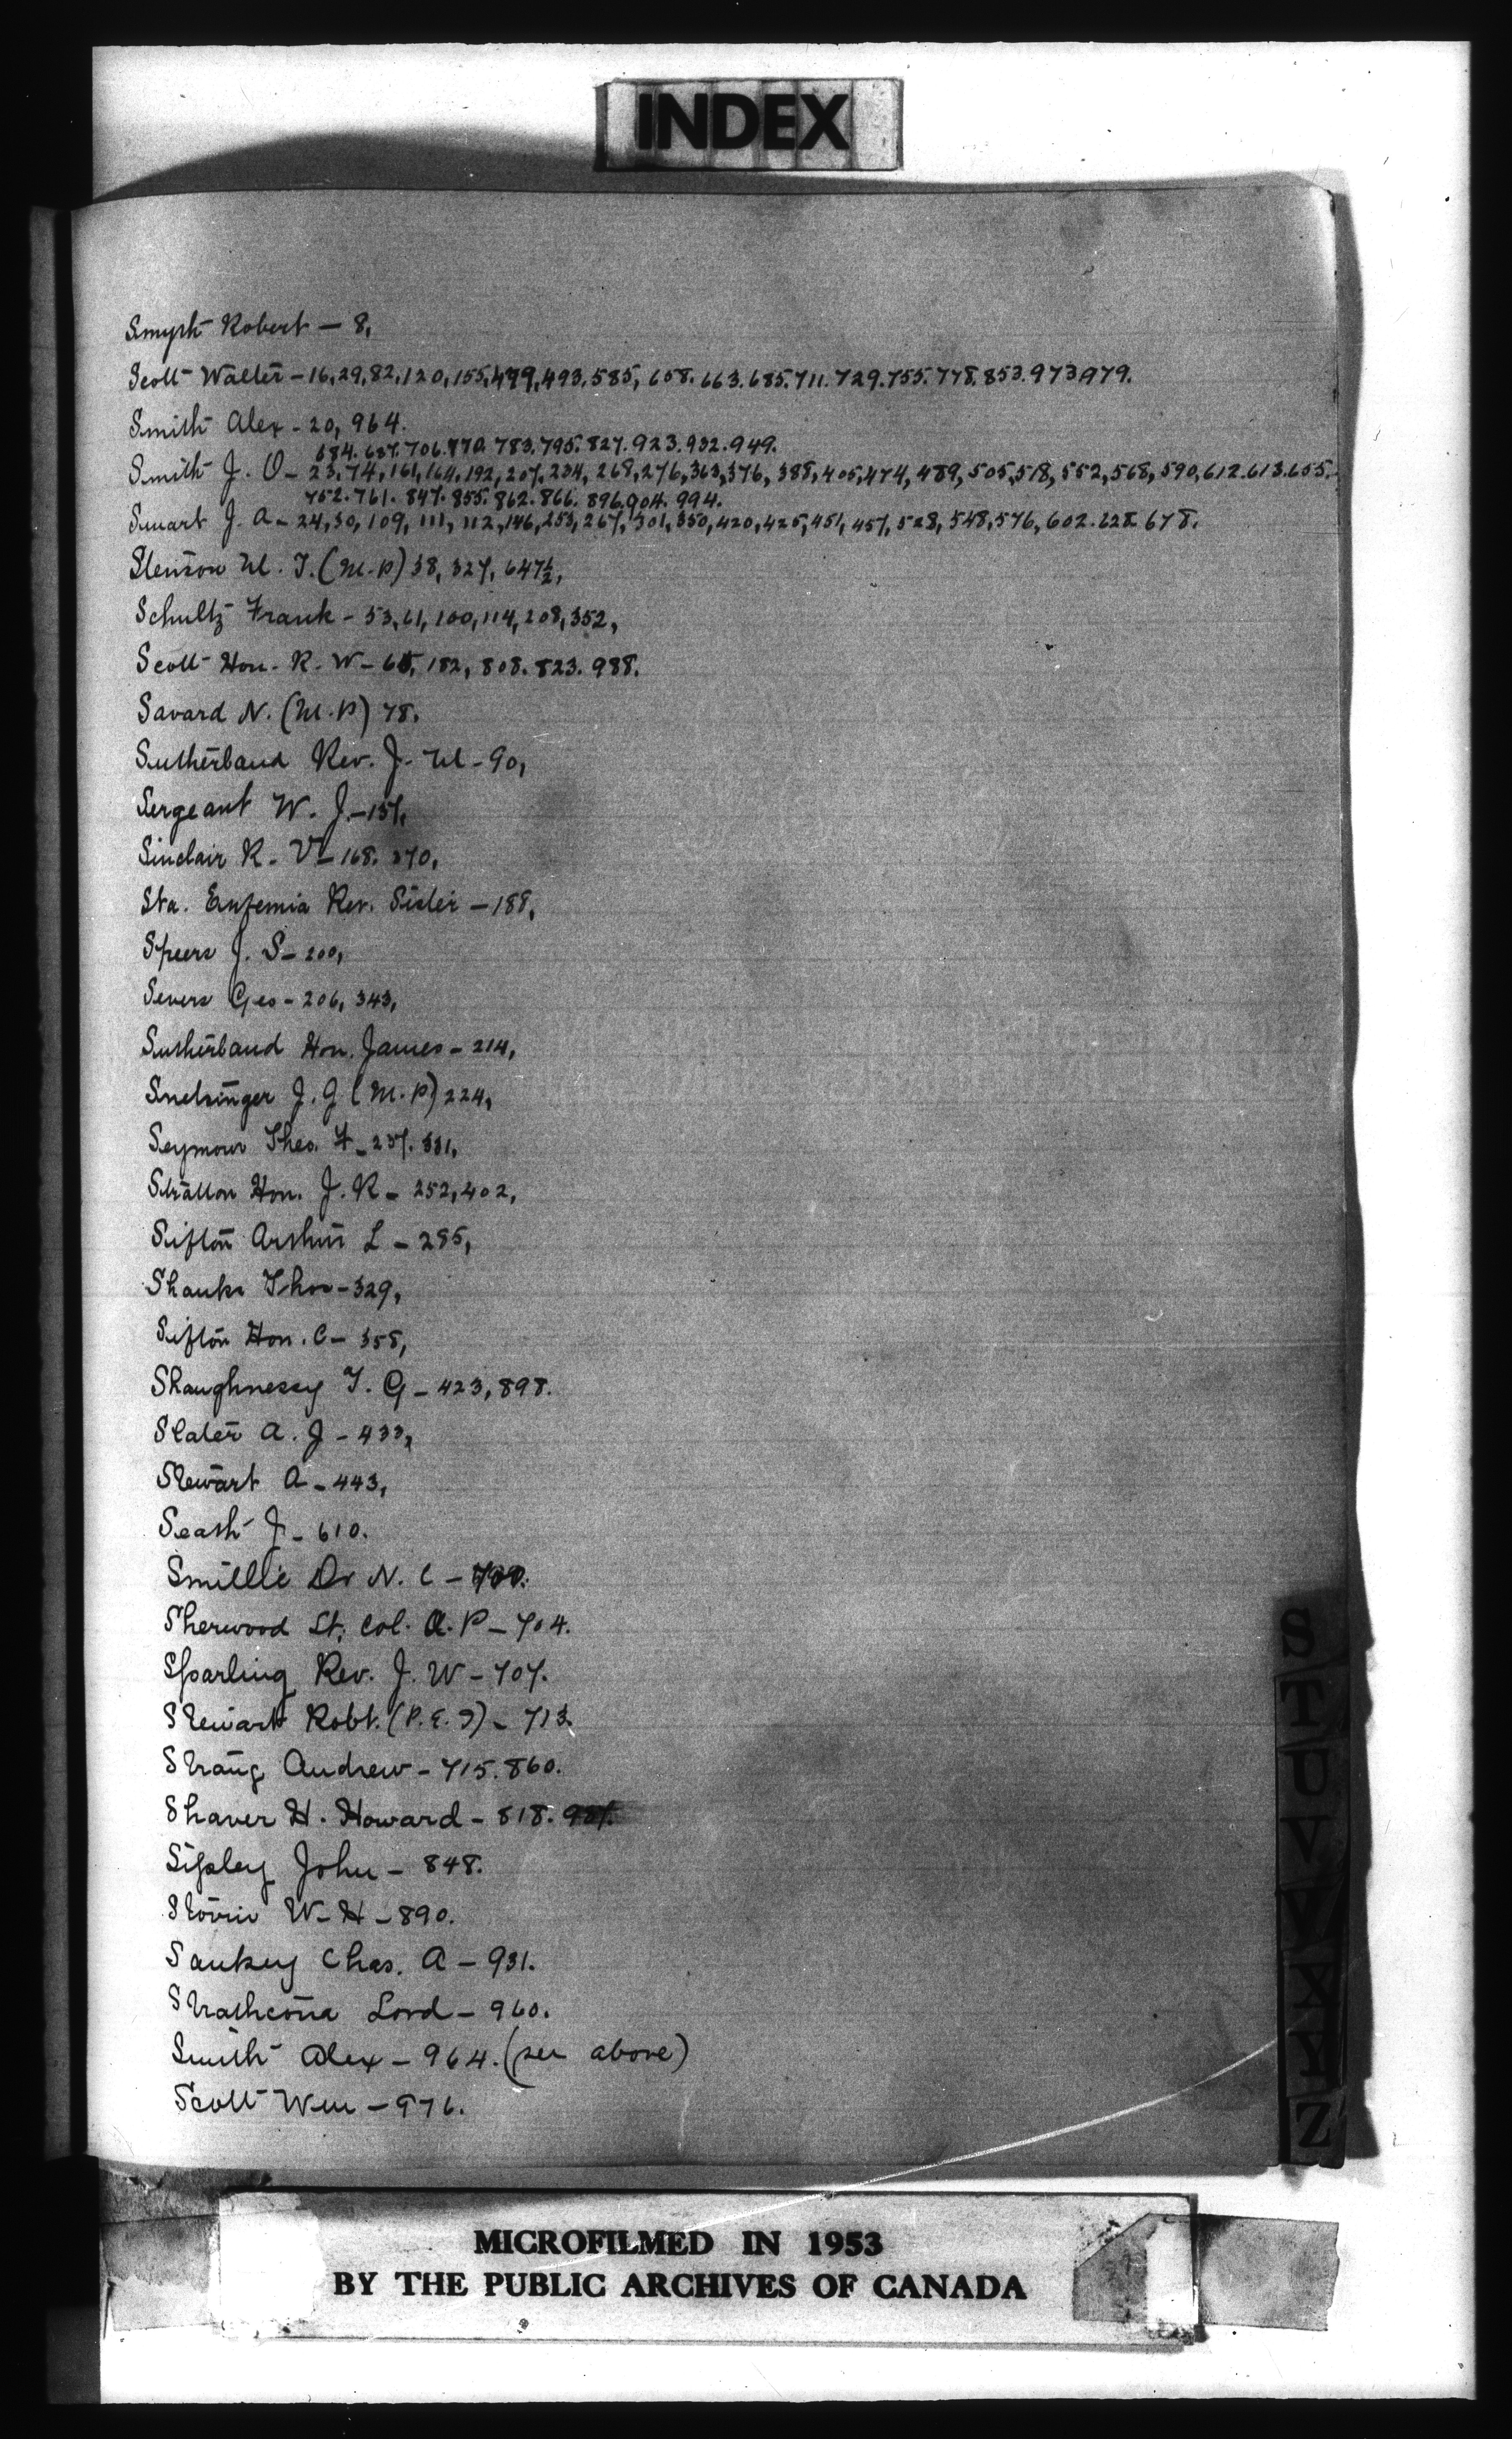 INDEX
Smyth Robert — 8,
Scott Walter - 16, 29, 82, 120, 155, 479, 493. 585, 658. 663. 685. 711. 729. 755. 778. 853. 973 979.
Smith Alex - 20, 964.
684. 687. 706. 770. 783. 795. 827. 923. 932. 949.
Smith J. O - 23, 74, 161, 164, 192, 207, 234, 268, 276, 363, 376, 388, 405, 474, 489, 505, 518, 552, 568, 590, 612. 613. 655.
752. 761. 847. 855. 862. 866. 896. 904. 994.
Smart J. A - 24, 30, 109, 111, 112, 146, 253, 267, 301, 350, 420, 425, 451, 457, 528, 548, 576, 602. 628 678.
Stenson M. T. (M.P) 38, 327, 647½,
Schultz Frank - 53, 61, 100, 114, 208, 352,
Scott Hon. R. W - 182, 808. 823. 988.
Savard N. (M.P) 78.
Sutherland Rev. J. M - 90,
Sergeant W. J. - 157,
Sinclair R. V - 168. 270,
Sta. Eufemia Rev. Sister - 188,
Speers J. S - 200,
Severs Geo - 206, 343,
Sutherland Hon. James - 214,
Snetsinger J. G (M.P) 224,
Seymour Theo. F - 237. 331,
Stratton Hon. J. R - 252, 402,
Sifton Arthur L - 295,
Shanks Thos - 329,
Sifton Hon. C - 358,
Shaughnessy T. G - 423, 898.
Slater A. J - 433,
Stewart A - 443,
Seath J - 610.
Smillie Dr N. C -
Sherwood Lt. Col. A. P - 704.
Sparling Rev. J. W - 707.
Stewart Robt. (P.E.I) - 713.
Strang Andrew - 715. 860.
Shaver H. Howard - 818.
Sipley John - 848.
Storrie W. H - 890.
Sankey Chas. A - 931.
Strathcona Lord - 960.
Smith Alex - 964. (see above)
Scott Wm - 976.
S
T
U
V
W
X
Y
Z
MICROFILMED IN 1953
BY THE PUBLIC ARCHIVES OF CANADA